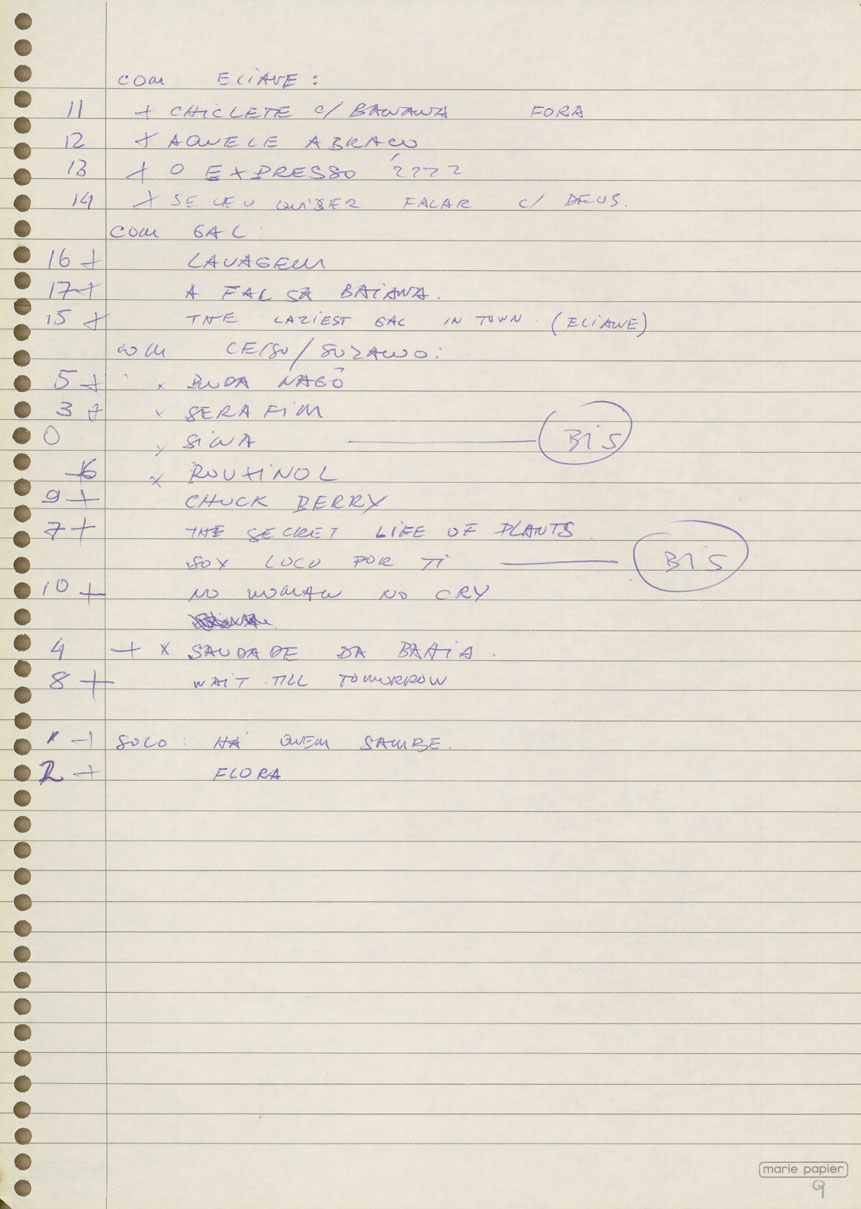 COM ELIANE:
11 + CHICLETE C/ BANANA FORA
12 + AQUELE ABRAÇO
13 + O EXPRESSO 2222
14 + SE EU QUISER FALAR C/ DEUS.
COM GAL:
16 + LAVAGEM
17 + A FALSA BAIANA.
15 + THE LAZIEST GAL IN TOWN (ELIANE)
COM CELSO/SUZANO:
5 + x BUDA NAGÔ
3 + x SERAFIM
0 x SINA BIS
6 x ROUXINOL
9 + CHUCK BERRY
7 + THE SECRET LIFE OF PLANTS
SOY LOCO POR TI BIS
10 + NO WOMAN NO CRY
4 + x SAUDADE DA BAHIA.
8 + WAIT TILL TOMORROW
1 + SOLO: HÁ QUEM SAMBE.
2 + FLORA
marie papier
9